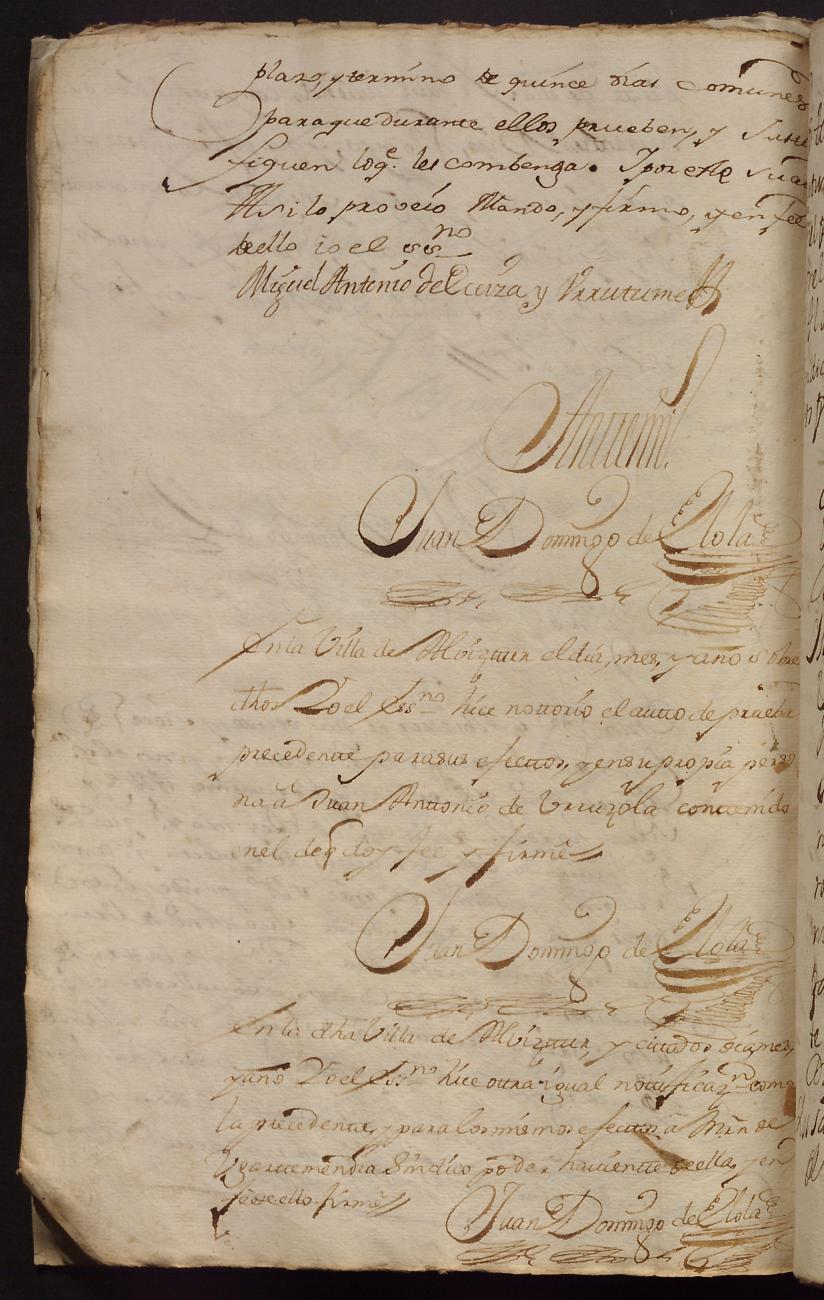 plazo, y termino de quince dias comunes
para que durante ellos prueben, y Justi
fiquen loq.e les combenga. I por este su au
Assi lo proveió Mando, y firmo, y en fee
de ello io el ss.no
Miguel Antonio de
Antemi
Juan Domingo de
En la Villa de Alvíztur el dia, mes, y año sobre
dhos Yo el Ess.no hice nottorio el autto de prueba
precedente para sus efecttos, y en su propia perso
na â Juan Anttonio de Urruzola conttenido
en el deq doy fee y firmê
Juan Domingo de
En la dha Villa de Alvíztur, y cittados dia, mes,
y año Yo el Ess.no hice otra igual nottificaz.n como
la precedente, y para los mismos efecttos â Mrn de
Ugarttemendia Sindico poder havientte de ella, y en
fee de ello firmê
Juan Domingo de